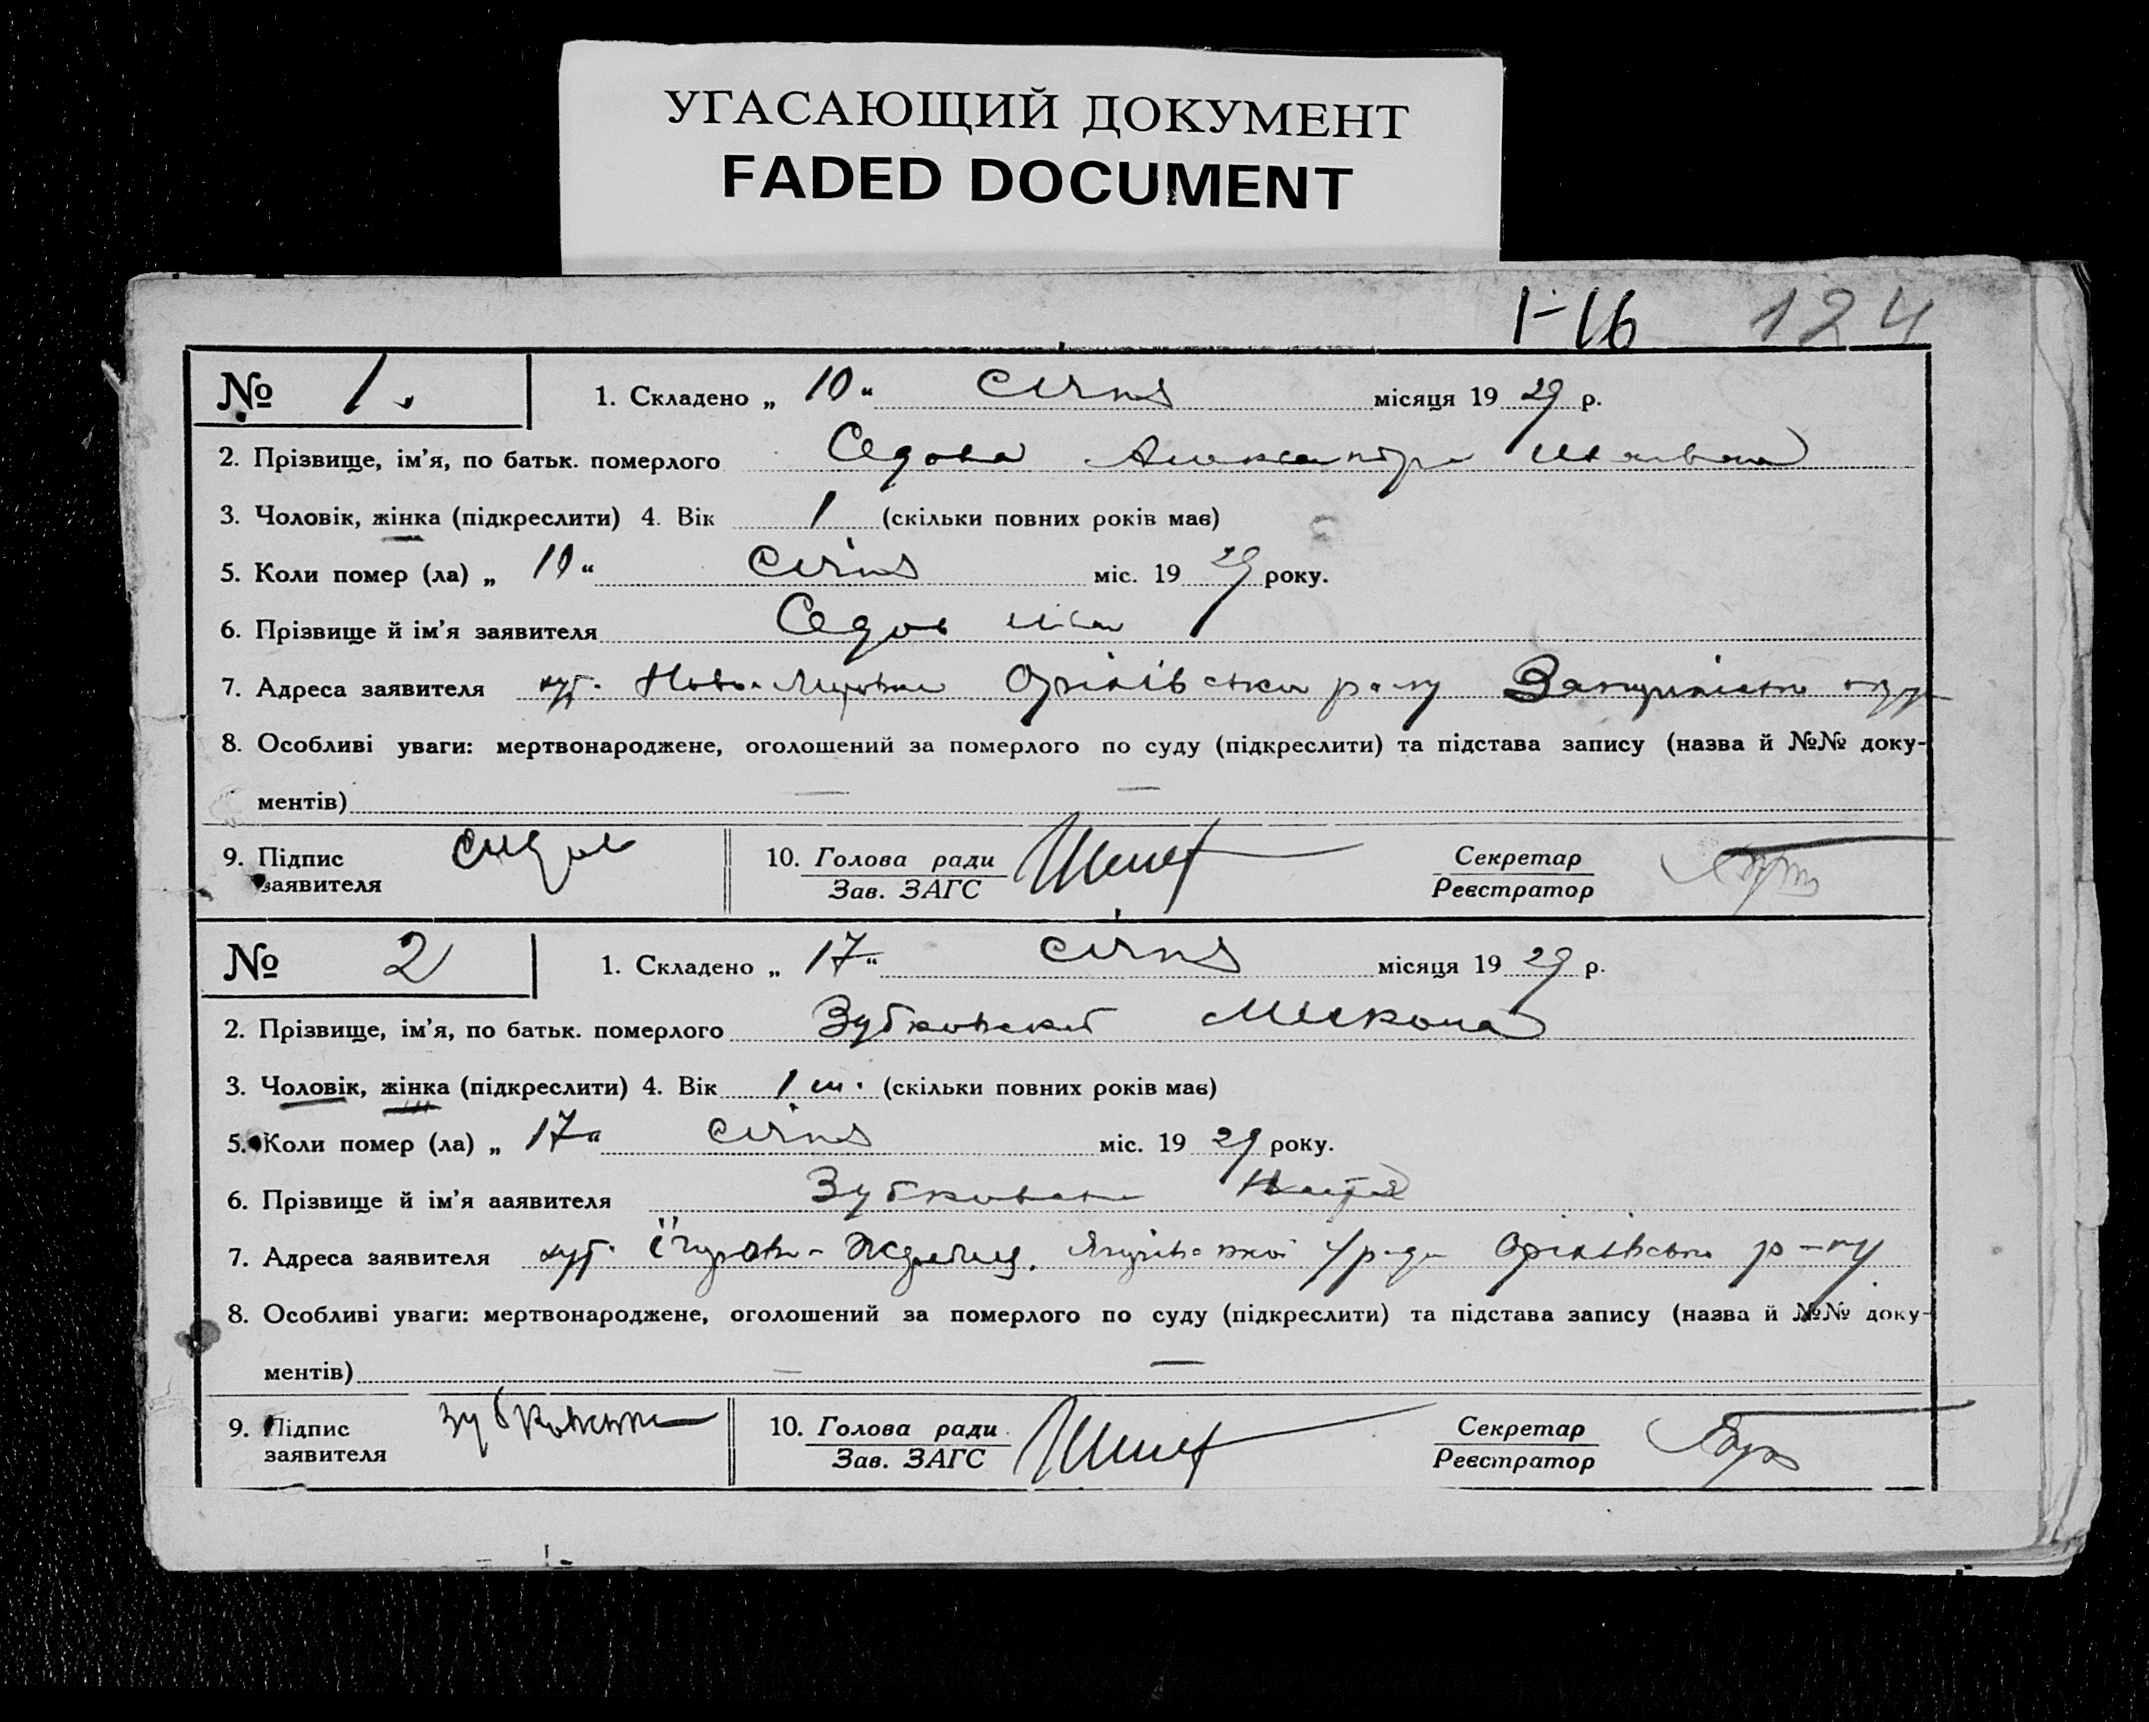 УГАСАЮЩИЙ ДОКУМЕНТ
FADED DOCUMENT
1-16 124
№ 1. 1. Складено „ 10 “ січня місяця 19 29 р.
2. Прізвище, ім'я, по батьк. померлого Седова Александра
3. Чоловік, жінка (підкреслити) 4. Вік 1 (скільки повних років має)
5. Коли помер (ла) „ 10 “ січня міс. 19 29 року.
6. Прізвище й ім'я заявителя Седов
7. Адреса заявителя хут. Ново- Оріхівськ району
8. Особливі уваги: мертвонароджене, оголошений за померлого по суду (підкреслити) та підстава запису (назва й №№ доку-
ментів) — —
9. Підпис заявителя 10. Голова ради Секретар
Зав. ЗАГС Реєстратор
№ 2 1. Складено „ 17 “ січня місяця 19 29 р.
2. Прізвище, ім'я, по батьк. померлого Зубковский Микола
3. Чоловік, жінка (підкреслити) 4. Вік 1 м. (скільки повних років має)
5. Коли помер (ла) „ 17 “ січня міс. 19 29 року.
6. Прізвище й ім'я ааявителя Зубковська Настя
7. Адреса заявителя хут. с/ради Оріхівськ р-ну
8. Особливі уваги: мертвонароджене, оголошений за померлого по суду (підкреслити) та підстава запису (назва й №№ доку-
ментів) — —
9. Підпис заявителя 10. Голова ради Секретар
Зав. ЗАГС Реєстратор